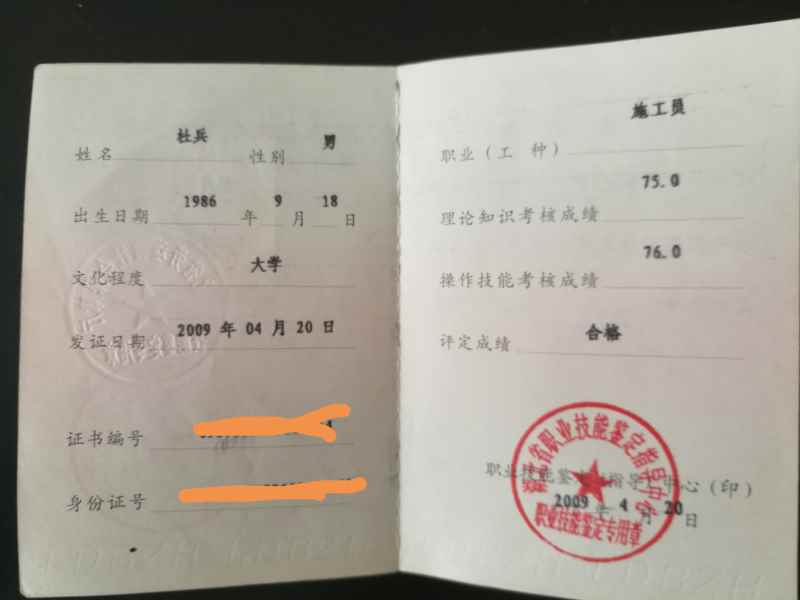 姓名 杜兵 性别 男
出生日期 1986 年 9 月 18 日
文化程度 大学
发证日期 2009 年 04 月 20 日
证书编号
身份证号
职业（工 种） 施工员
理论知识考核成绩 75.0
操作技能考核成绩 76.0
评定成绩 合格
省职业技能鉴定指导中心
职业技能鉴定指导中心（印）
2009 年 4 月 20 日
职业技能鉴定专用章